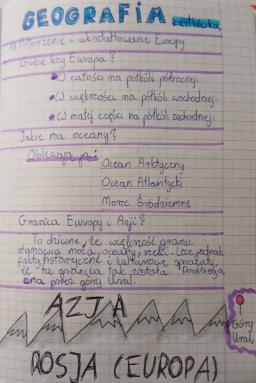 GEOGRAFIA kartkówka
Położenie i ukształtowanie Europy
Gdzie leży Europa?
W całości na półkóli północnej.
W większości na półkóli wschodniej.
W małej części na półkóli zachodniej.
Jakie ma oceany?
Oblewają ją:
Ocean Arktyczny
Ocean Atlantycki
Morze Śródziemne
Granica Europy i Azji?
To dziwne, że większość granic
stanowią morza, oceany, rzeki. Lecz jednak
fakty historyczne i kulturowe sprawiły,
że ta granica tak została. Przebiega
ona przez góry Ural.
AZJA
Góry
Ural
ROSJA (EUROPA)